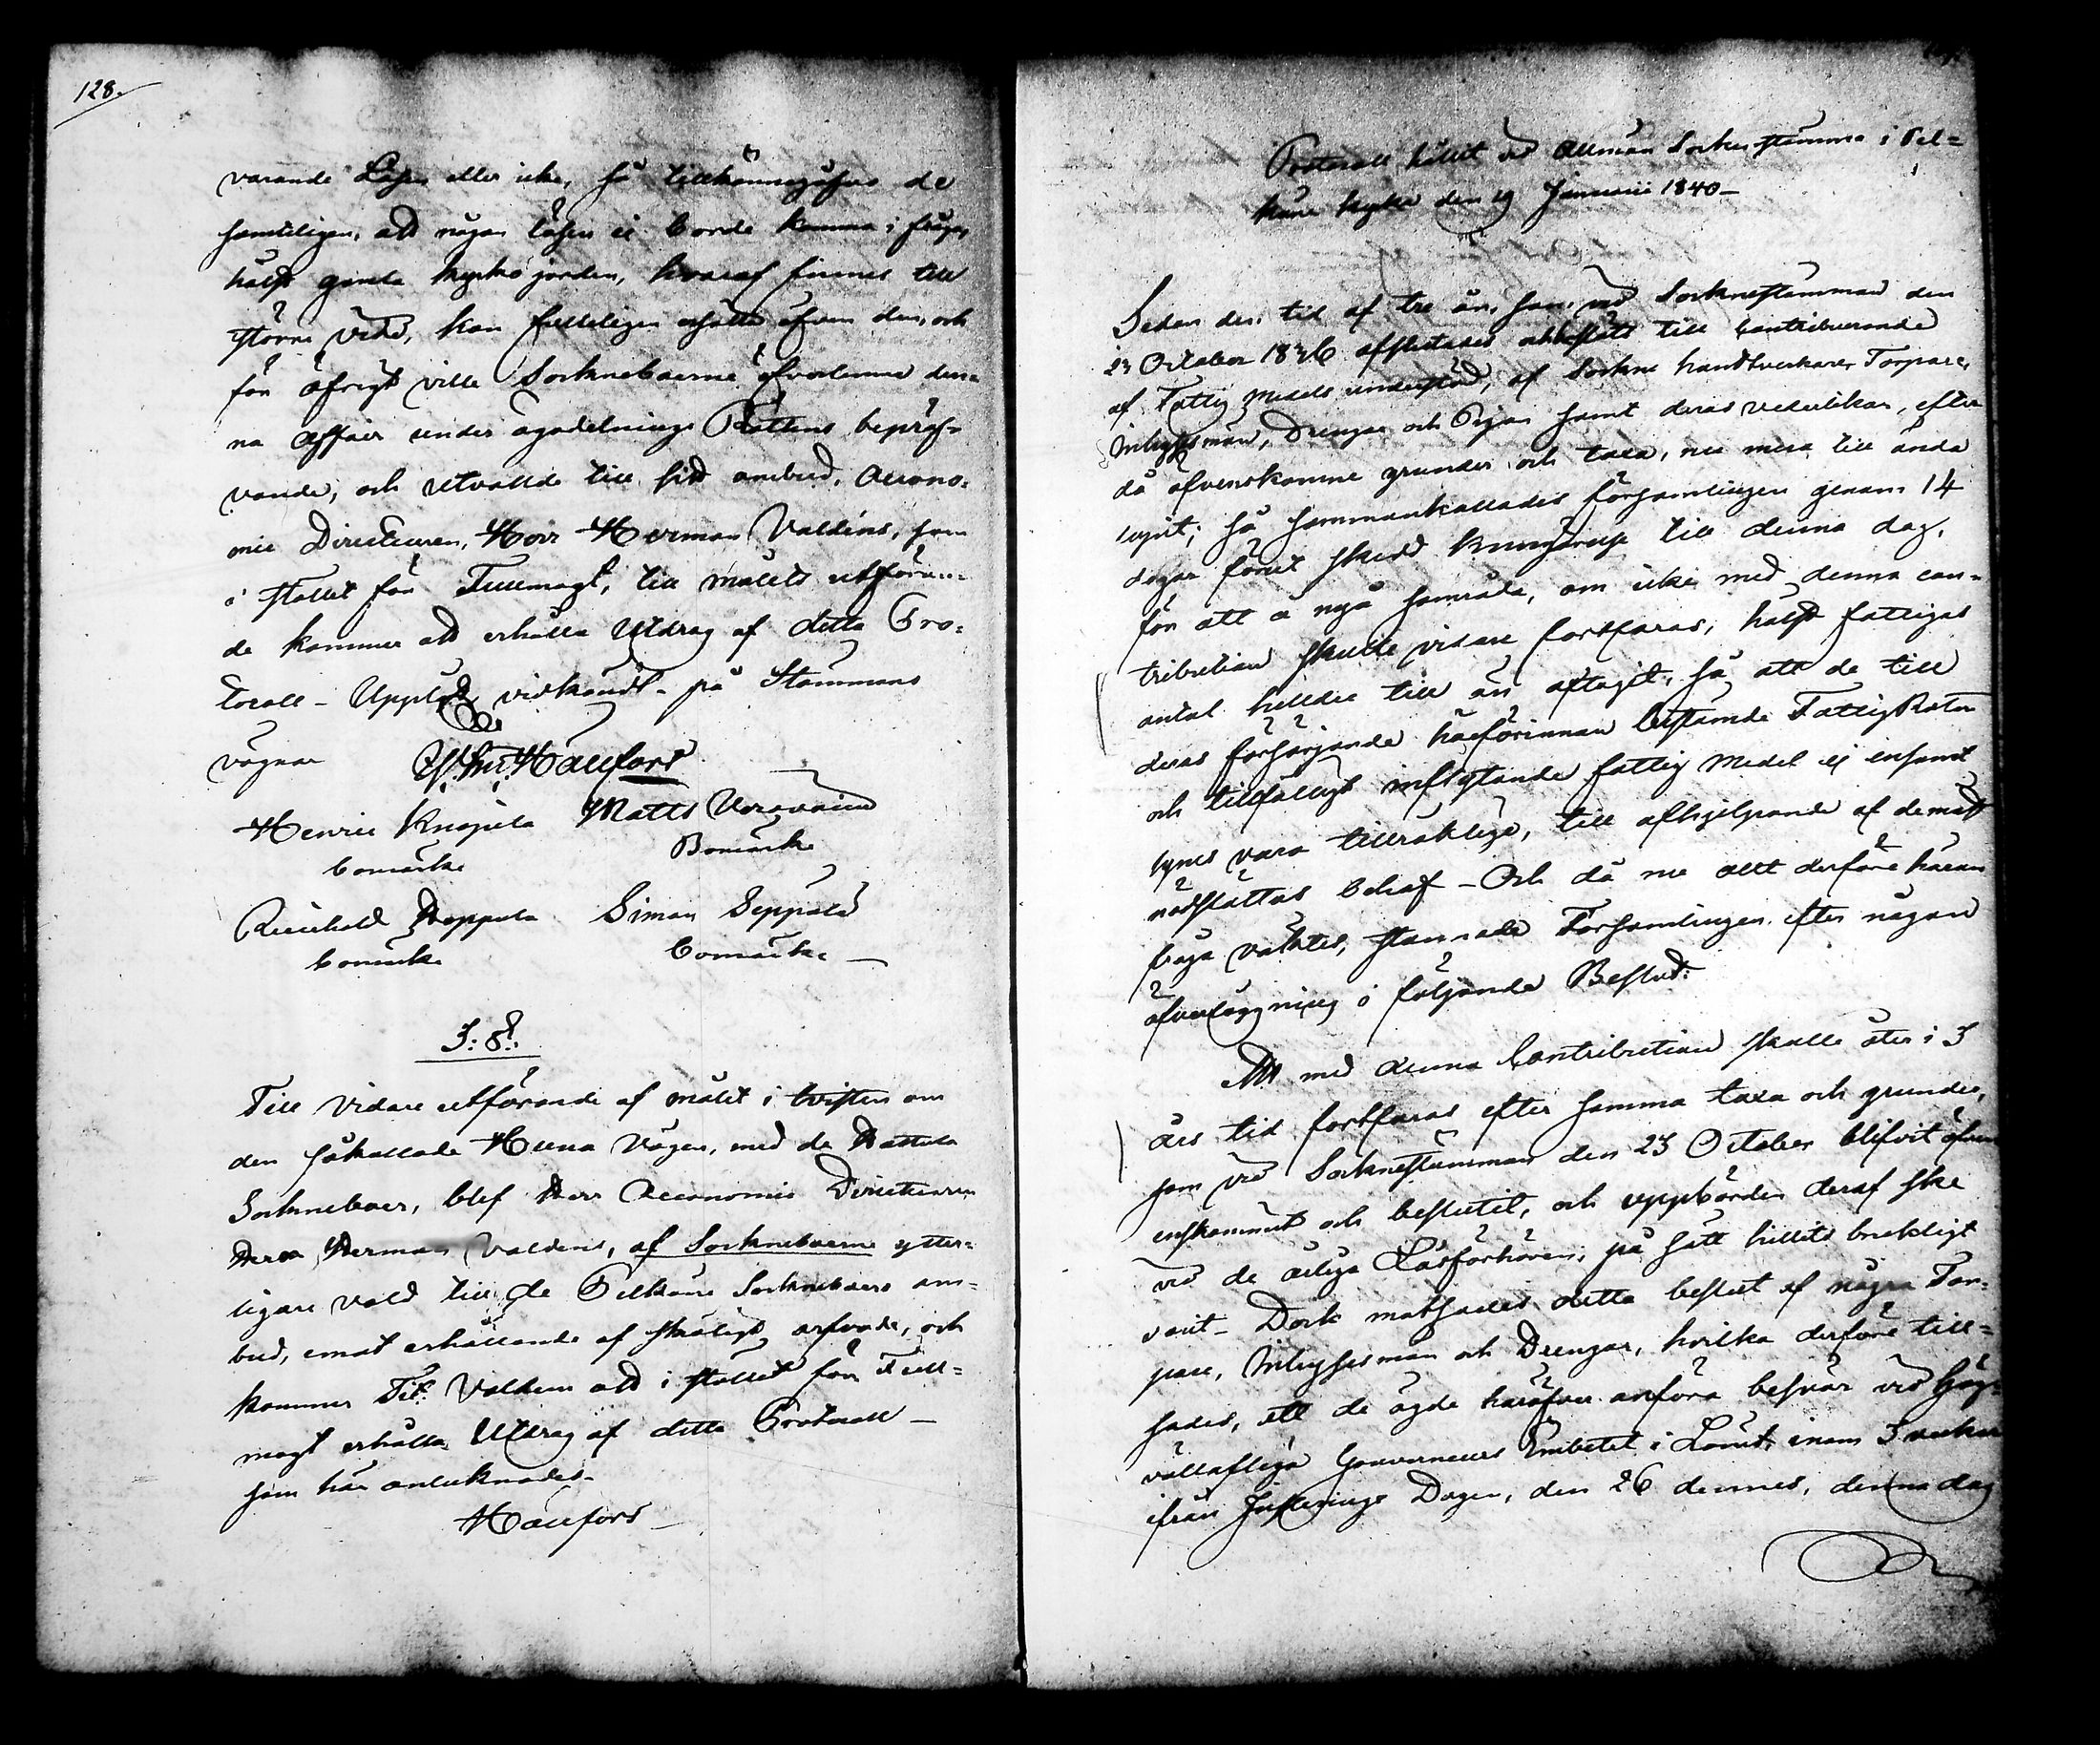 128.
varande Lösen eller icke, så tillkännagåfvo de
samteligen, att någon lösen ej borde komma i fråga,
hälst gamla kyrkojorden, hvaraf finnes till
större vidd, kan fulleligen ersätta äfven den, och
för öfrigt ville Sockneboerne öfverlemna den-
na affair under ägodelnings Rättens bepröf-
vande, och utvallde till sitt ombud, Oecono-
mie Directeuren, Herr Herman Valdéns, som
i stället för Fullmagt, till målets utföran-
de kommer att erhålla Utdrag af detta Pro-
tocoll – Uppläst, vidkändt – på Stämmans
vägnar Hällfors
Henric Knapila Matts
bomärke Bomärke
Reinhold Hoppula Simon Seppälä
bomärke bomärke –
§: 8:
Till vidare utförande af målet i tvisten om
den såkallade Huna Vägen, med de Hattula
Socknebor, blef Herr Oeconomie Directeuren
Herman Valdens, af Socknebоerne ytter-
ligare vald till de Pelkäne Socknebоers om-
bud, emot erhållande af skäligt arfvode, och
kommer Tit. Valdens att i stället för Full-
magt erhålla Utdrag af detta Protocoll –
som här antecknades –
Hällfors –
Protocoll hållit vid Allmän Sockenstämma i Pel-
käne kyrka den 19 Januarii 1840 –
Sedan den tid af tre år, som vid Sockenstämman den
23 October 1836 afslutades och till contribuerande
af Fattig medels understöd, af Sockne handtverkare, Torpare,
Inhysesmän, Drengar och Pigor samt deras vederlikar, efter
då öfverenskomne grunder och taxa, nu mera till ända
lupit; så sammankallades församlingen genom 14
dagar förut skedd kungörelse till denna dag,
för att å nyo samråda, om icke med denna con-
tribution skulle vidare fortfaras, hälst fattigas
antal hälldre till än aftagit, så att de till
deras försörjande härförinnan bestämde Fattig Roter
och tillfälligt inflytande fattig Medel ej ensamt
synes vara tillräklige, till afhjelpande af de mäst
nödstältas behof – Och då nu allt derföre häran
fråga väcktes, stannade Församlingen efter någon
öfverläggning i följande Beslut:
Att med denna Contribution skulle åter i 3
års tid fortfaras efter samma taxa och grunder,
som vid Socknestämman den 23 October blifvit öfver
enskommit och beslutit, och uppbörden deraf ske
vid de årliga Läsförhören, på sätt hittils brukligt
varit – Dock motsades detta beslut af några Tor-
pare, Inhysesmän och Drengar, hvilka derföre till-
sades, att de ägde häröfver anföra besvär vid Hög-
vällofliga Gouverneurs Embetet i Länet, inom 3 veckor
ifrån Justerings Dagen, den 26 dennes, denna dag